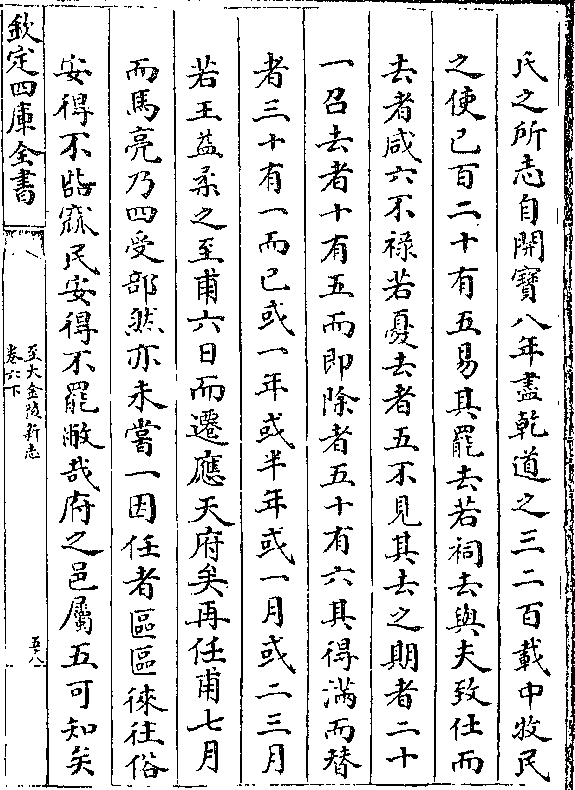 氏之所志自開寶八年盡乾道之三二百載中牧民
之使已百二十有五易其罷去若祠去與夫致仕而
去者咸六不祿若憂去者五不見其去之期者二十
一召去者十有五而即除者五十有六其得滿而替
者三十有一而已或一年或半年或一月或二三月
若王益柔之至甫六日而遷應天府矣再任甫七月
而馬亮乃四受部然亦未嘗一因任者區區徠往俗
安得不㗖窳民安得不罷敝哉府之邑屬五可知矣
欽定四庫全書
至大金陵新志
卷六下
五八